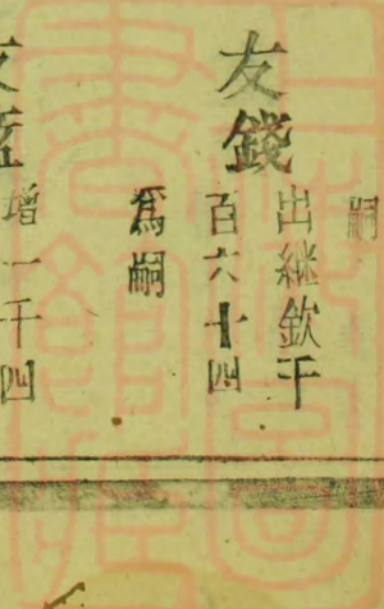 嗣
友錢
出繼欽干
百六十四
爲嗣
友
增一千四